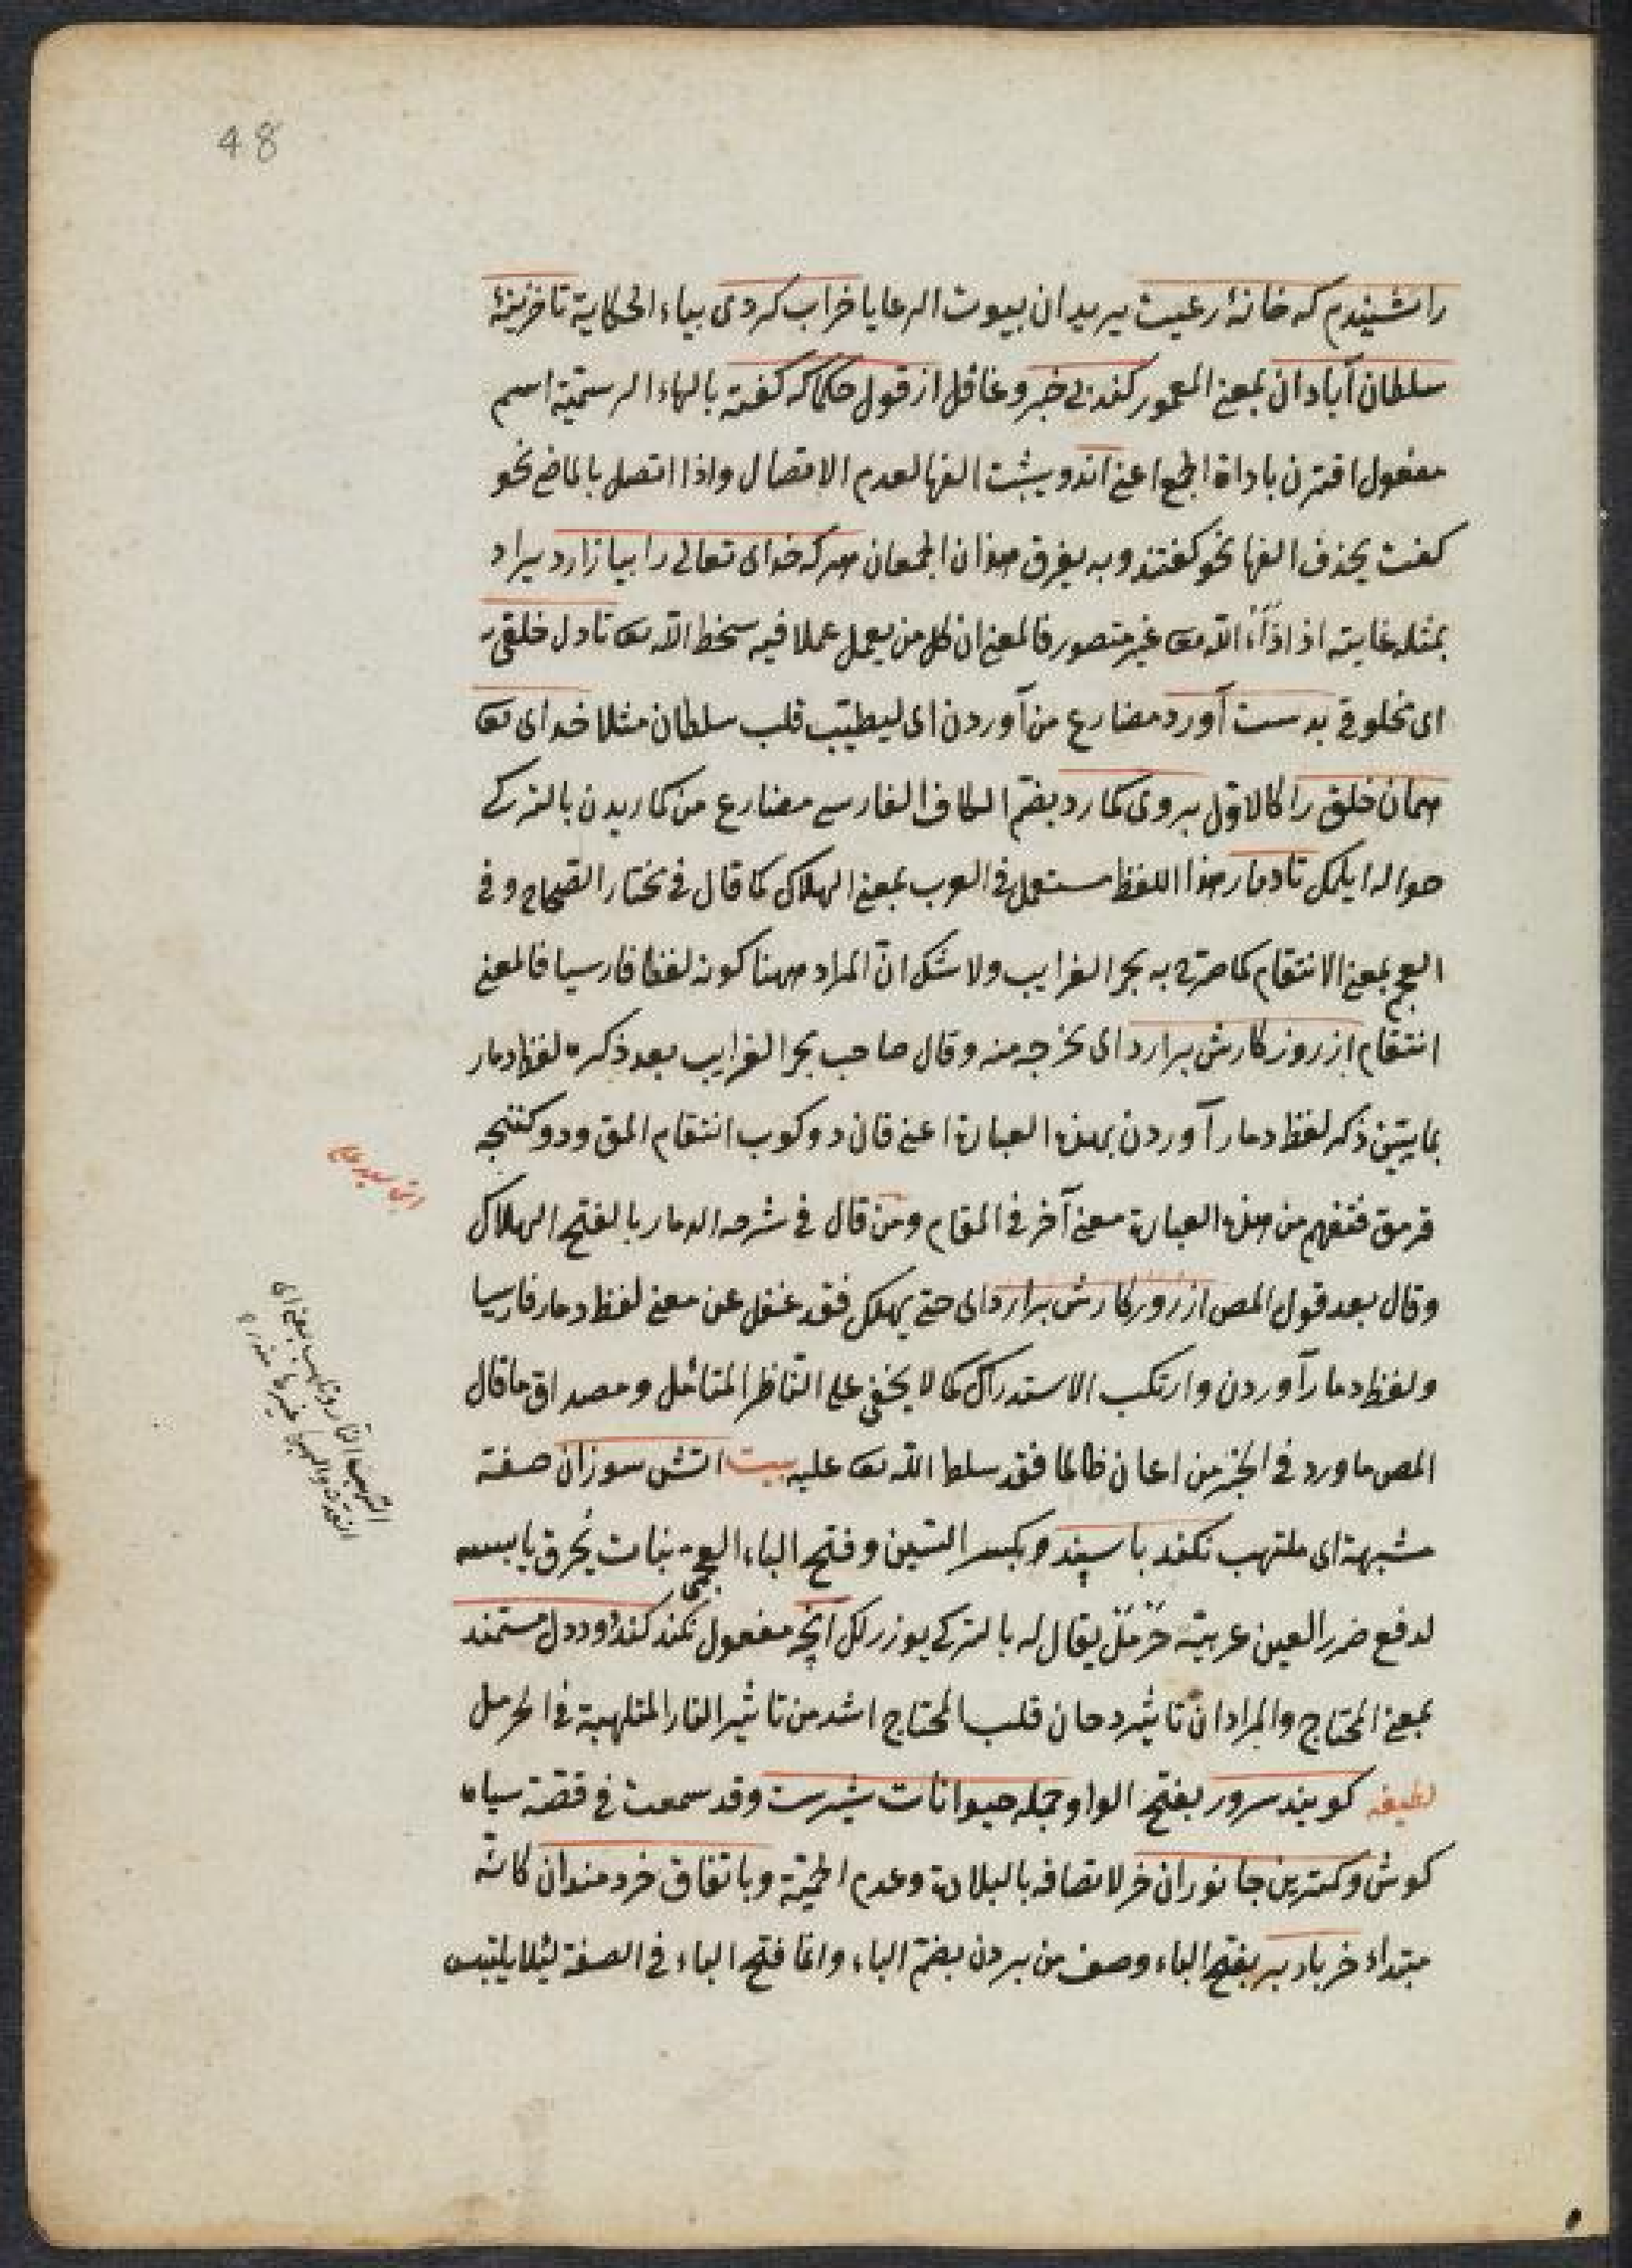 48
را شنیدم که خانهٔ رعیت یرید ان بیوت الرعایا خراب کردی بیاء الحکایة تا خزینهٔ
سلطان آبادان بمعنی المعمور کند بی خبر وغافل از قول حکما که گفته بالهاء الرسمیّة اسم
مفعول اقترن باداة الجمع اعنی اند ویثبت الفها لعدم الاتصال واذا اتصل بالماضی نحو
کفت یحذف الفها نحو کفتند وبه یفرق هذان الجمعان هرکه خدای تعالی را بیازارد یراد
بمثله غایته اذ اذاء الله تعا غیر متصور فالمعنی ان کل من یعمل عملا فیه سخط الله تعا تا دل خلقی
ای مخلوقی بدست آورد مضارع من آوردن ای لیطیّب قلب سلطان مثلا خدای تعا
همان خلق را کالاول بروی کمارد بضم الکاف الفارسی مضارع من کماریدن بالترکی
حواله ایلمک تا دمار هذا اللفظ مستعمل فی العرب بمعنی الهلاک کما قال فی مختار الصحاح وفی
العجم بمعنی الانتقام کما صرّح به بحر الغرایب ولا شک انّ المراد ههنا کونه لفظا فارسیا فالمعنی
انتقام از روزکارش برارد ای یخرجه منه وقال صاحب بحر الغرایب بعد ذکره لفظ دمار
بما یبیّن ذکر لفظ دمار آوردن بهذه العبارة اعنی قان دوکوب انتقام المق ودوکنجه
قرمق فتفهم من هذه العبارة معنی آخر فی المقام ومن قال فی شرحه الدمار بالفتح الهلاک
وقال بعد قول المص از روزکارش برارد ای حتی یهلک فقد غفل عن معنی لفظ دمار فارسیا
ولفظ دمار آوردن وارتکب الاستدراک کما لا یخفی علی الناظر المتأمل ومصداق ما قال
المص ما ورد فی الخبر من اعان ظالما فقد سلط الله تعا علیه بیت اتش سوزان صفة
مشبهة ای ملتهب نکند با سپند وبکسر السین وفتح الباء العجمی نبات یُحرق یابسه
لدفع ضرر العین عربیّة حَرْمَل یقال له بالترکی یوزرلک آنچه مفعول نکند کند دود دل مستمند
بمعنی المحتاج والمراد انّ تاثیر دخان قلب المحتاج اشد من تاثیر النار المتلهبة فی الحرمل
لطیفه کویند سرور بفتح الواو جمله حیوانات شیرست وقد سمعت فی قصة سیاه
کوش وکمترین جانوران خر لاتصافه بالبلادة وعدم الحمیّة وباتفاق خردمندان کانّه
مبتداء خر بار بر بفتح الباء وصف من بردن بضم الباء وانما فتح الباء فی الصفة لئلا یلتبس